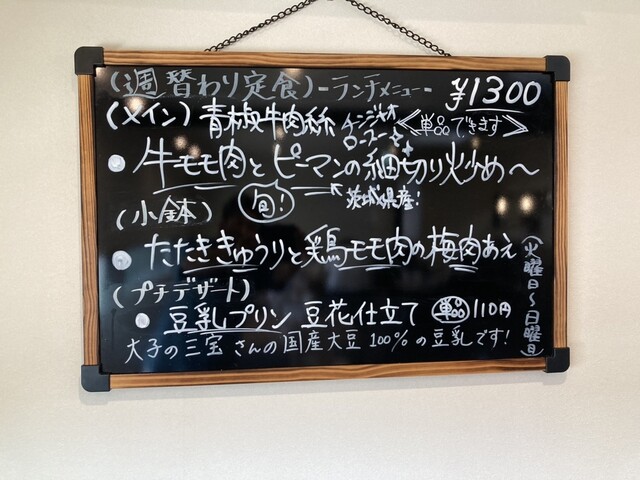 (週替わり定食)-ランチメニュー- ¥1300
(メイン)青椒牛肉絲 チンジャオロースーを 《単品できます》
牛モモ肉とピーマンの細切り炒め〜
旬! 茨城県産!
(小鉢)
たたききゅうりと鶏モモ肉の梅肉あえ
(プチデザート)
豆乳プリン 豆花仕立て 単品110円
大子の三宝さんの国産大豆100%の豆乳です!
(火曜日〜日曜日)